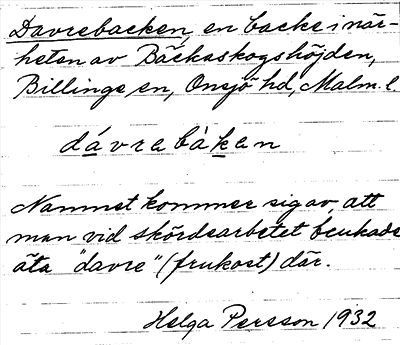 Davrebacken, en backe i när-
heten av Bäckaskogshöjden,
Billinge sn, Onsjö hd, Malm. l.
dávrabàkan
Namnet kommer sig av, att
man vid skördearbetet brukade
äta "davre" (frukost) där.
Helga Persson 1932